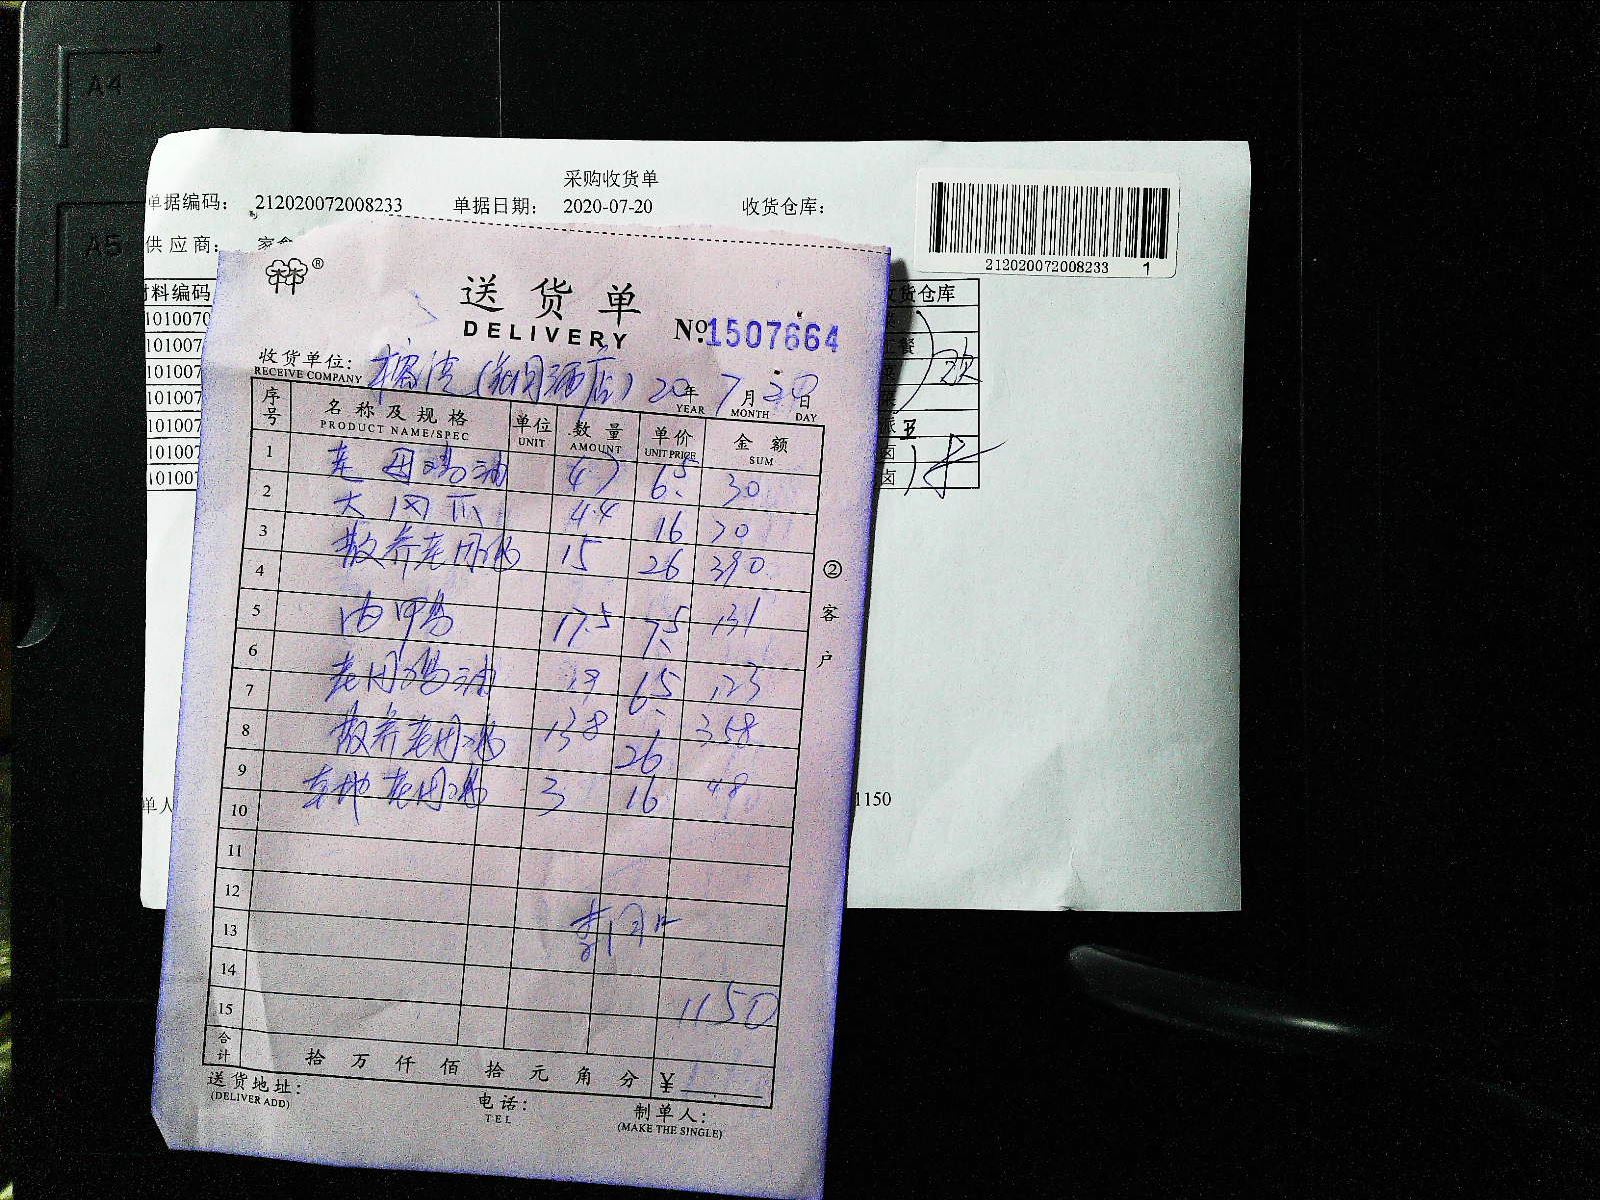 A4
A5
采购收货单
单据编码： 212020072008233 单据日期： 2020-07-20 收货仓库：
212020072008233 1
供应商：
材料编码 收货仓库
101007
101007
101007
101007
101007
101007
101007
1150
送货单
DELIVERY
№1507664
收货单位： 20年 7月20日
RECEIVE COMPANY YEAR MONTH DAY
序号 名称及规格 单位 数量 单价 金额
PRODUCT NAME/SPEC UNIT AMOUNT UNIT PRICE SUM
1 老母鸡油 4.7 6.5 30
2 4.4 16 70
3 散养老母鸡 15 26 390
4
5 鸭 17.5 7.5 131
6
7 老母鸡油 19 6.5 123
8 散养老母鸡 13.8 26 358
9 本地老母鸡 3 16 48
10
11
12
13
14
15 1150
合计 拾 万 仟 佰 拾 元 角 分 ¥
送货地址：
(DELIVER ADD)
电话：
TEL
制单人：
(MAKE THE SINGLE)
②客户